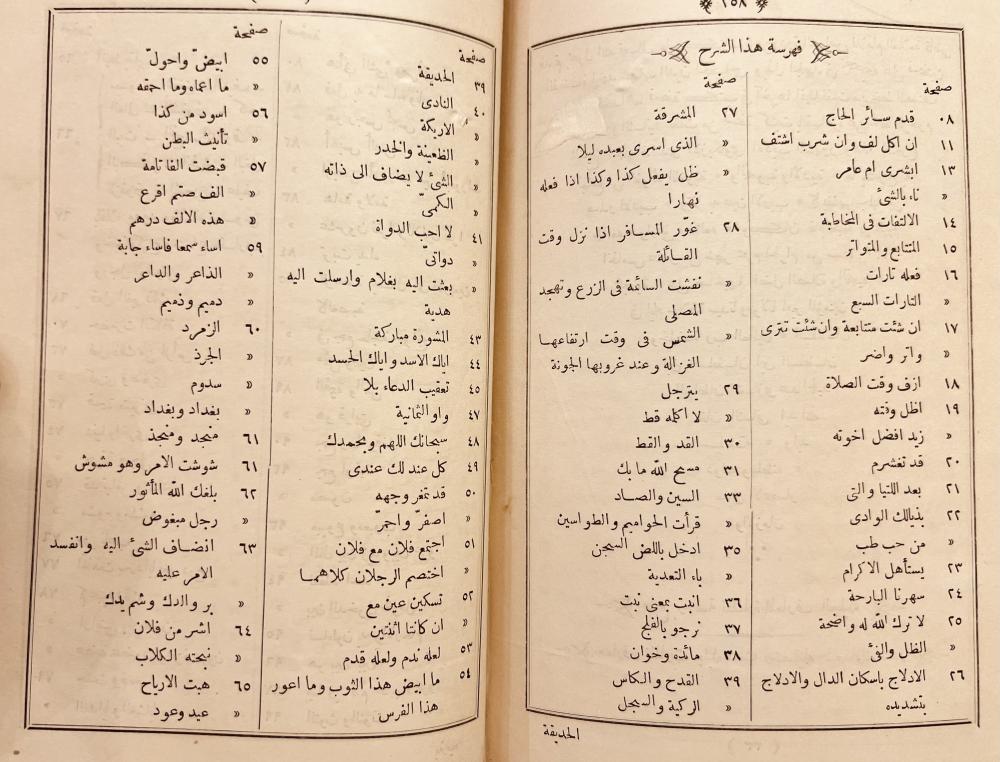 ٢٥٨
فهرسة هذا الشرح
صفحة
٠٨ قدم سائر الحاج
١١ ان اكل لف وان شرب اشتف
١٣ ابشرى ام عامر
« ناء بالشئ
١٤ الالتفات فى المخاطبة
١٥ المتتابع والمتواتر
١٦ فعله تارات
« التارات السبع
١٧ ان شئت متتابعة وان شئت تترى
« واتر واضر
١٨ ازف وقت الصلاة
١٩ اظل وقته
« زيد افضل اخوته
٢٠ قد تغشرم
٢١ بعد اللتيا والتى
٢٢ بذيالك الوادى
« من حب طب
٢٣ يستأهل الاكرام
٢٤ سهرنا البارحة
٢٥ لا ترك الله له واضحة
« الظل والفئ
٢٦ الادلاج باسكان الدال والادلاج
بتشديده
صفحة
٢٧ المشرقة
« الذى اسرى بعبده ليلا
« ظل يفعل كذا وكذا اذا فعله
نهارا
٢٨ غوّر المسافر اذا نزل وقت
القائلة
« نفشت السائمة فى الزرع وتهجد
المصلى
« الشمس فى وقت ارتفاعها
الغزالة وعند غروبها الجونة
٢٩ يترجل
« لا اكلمه قط
٣٠ القد والقط
٣١ مسح الله ما بك
٣٣ السين والصاد
« قرأت الحواميم والطواسين
٣٥ ادخل باللص السجن
« باء التعدية
٣٦ انبت بمعنى نبت
٣٧ نرجو بالفلج
٣٨ مائدة وخوان
٣٩ القدح والكاس
« الركية والسجل
الحديقة
صفحة
٣٩ الحديقة
٤٠ النادى
« الاريكة
« الظعينة والخدر
« الشئ لا يضاف الى ذاته
« الكمىّ
٤١ لا احب الدواة
« دواتىّ
« بعثت اليه بغلام وارسلت اليه
هدية
٤٣ المشورة مباركة
٤٤ اياك الاسد واياك الحسد
٤٥ تعقيب الدعاء بلا
٤٧ واو الثمانية
٤٨ سبحانك اللهم وبحمدك
٤٩ كل عند لك عندى
٥٠ قد تمغر وجهه
« اصفرّ واحمرّ
٥١ اجتمع فلان مع فلان
« اختصم الرجلان كلاهما
٥٢ تسكين عين مع
« ان كانتا اثنتين
٥٣ لعله ندم ولعله قدم
٥٤ ما ابيض هذا الثوب وما اعور
هذا الفرس
صفحة
٥٥ ابيضّ واحولّ
« ما اعماه وما احمقه
٥٦ اسود من كذا
« تأنيث البطن
٥٧ قبضت الفا تامة
« الف صتم اقرع
« هذه الالف درهم
٥٩ اساء سمعا فاساء جابة
« الذاعر والداعر
« دميم وذميم
٦٠ الزمرد
« الجرذ
« سدوم
« بغداد وبغداد
٦١ منجد ومنجذ
٦١ شوشت الامر وهو مشوش
٦٢ بلغك الله المأثور
« رجل مبغوض
٦٣ انضاف الشئ اليه وانفسد
الامر عليه
« بر والدك وشم يدك
٦٤ اشر من فلان
« نبحته الكلاب
٦٥ هبت الارياح
« عيد وعود